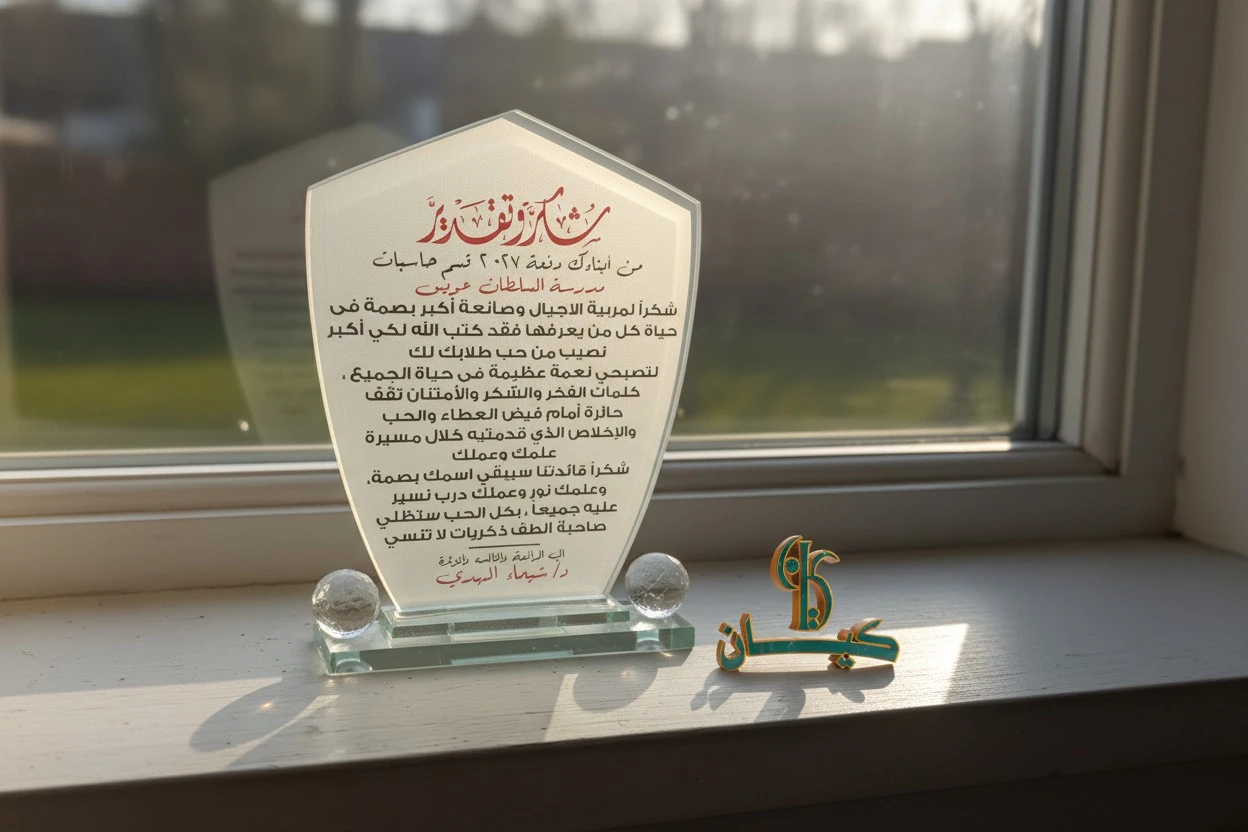 شكرٌ وتقديرٌ
من أبناءك دفعة ٢٠٢٧ قسم حاسبات
مدرسة السلطان عويس
شكراً لمربية الاجيال وصانعة أكبر بصمة فى
حياة كل من يعرفها فقد كتب الله لكي أكبر
نصيب من حب طلابك لك
لتصبحي نعمة عظيمة فى حياة الجميع ،
كلمات الفخر والشكر والأمتنان تقف
حائرة أمام فيض العطاء والحب
والإخلاص الذي قدمتيه خلال مسيرة
علمك وعملك
شكراً قائدتنا سيبقي اسمك بصمة،
وعلمك نور وعملك درب نسير
عليه جميعاً ، بكل الحب ستظلي
صاحبة الطف ذكريات لا تنسي
الى الرائعة
د/ شيماء المهدي
كيان